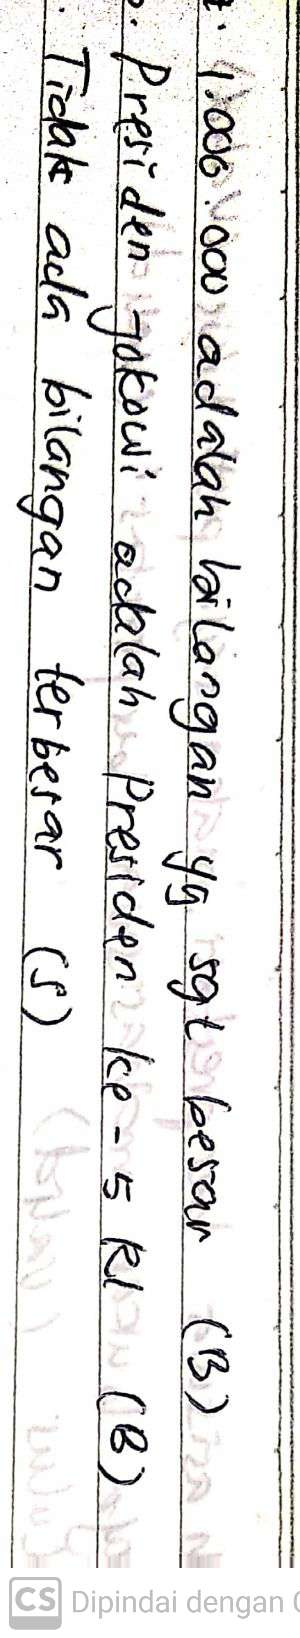 1.000.000 adalah bilangan yg sgt besar (B)
Presiden Jokowi adalah Presiden ke-5 RI (B)
Tidak ada bilangan terbesar (S)
CS Dipindai dengan